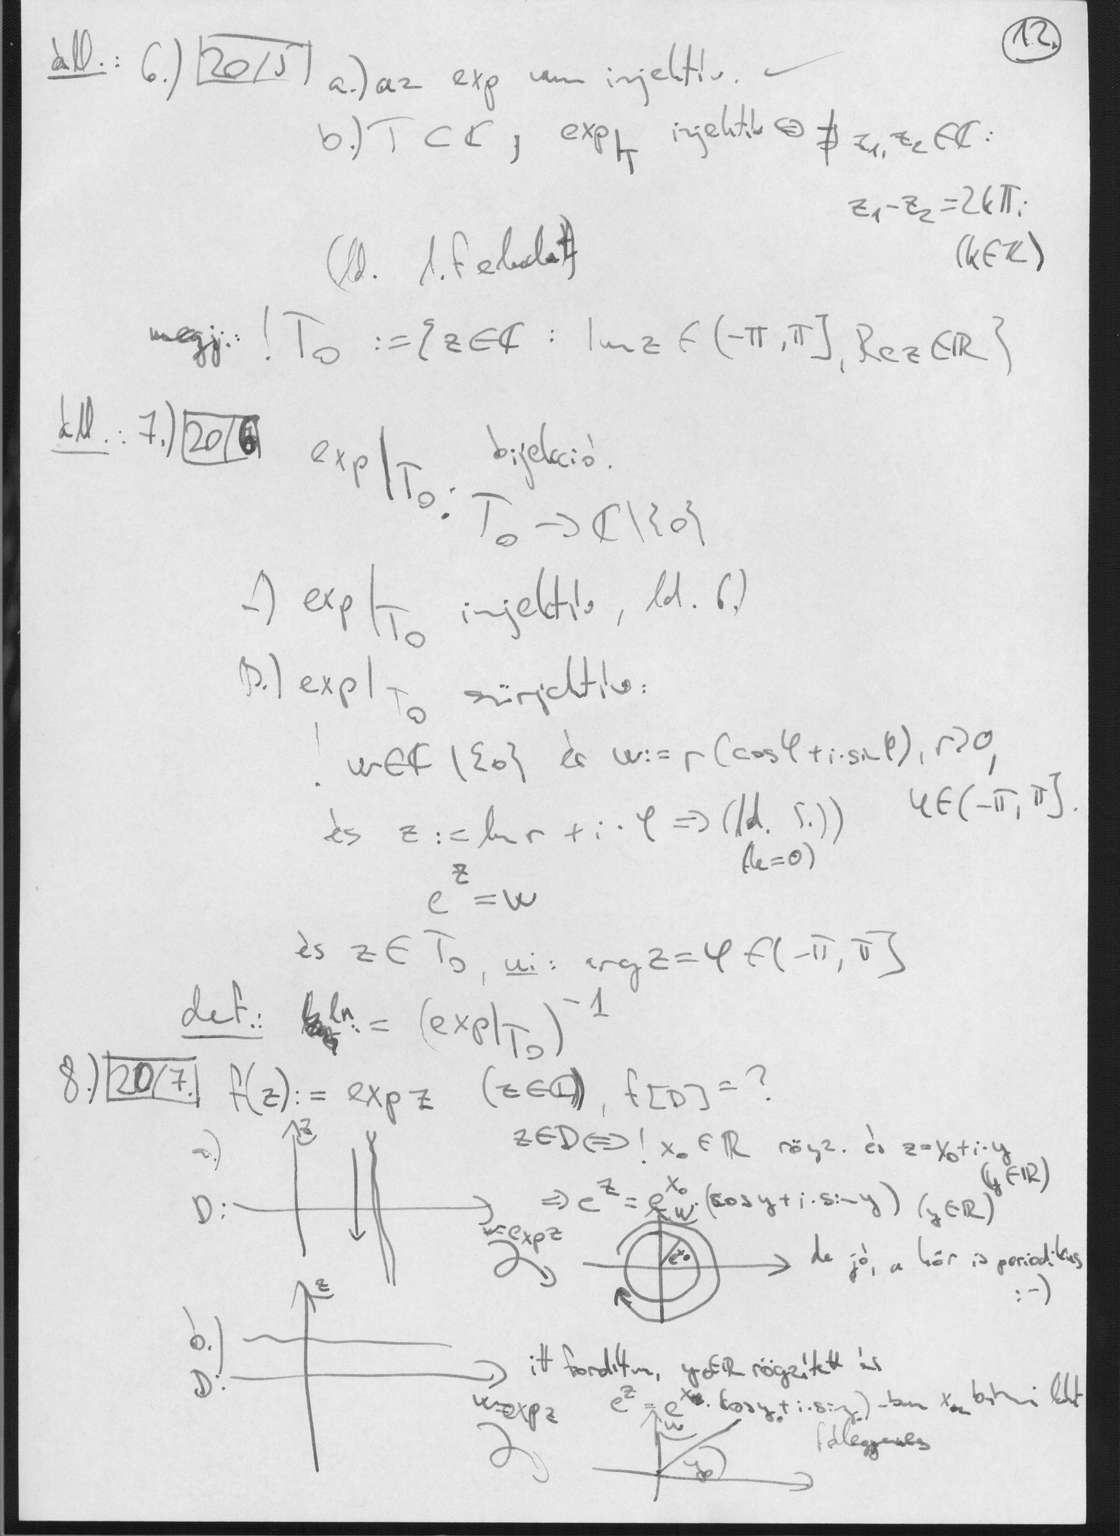 12.
áll.: 6.) 20/5 a.) az exp nem injektív. ✓
b.) T ⊂ ℂ, exp|T injektív ⇔ ∄ z₁, z₂ ∈ ℂ:
z₁-z₂ = 2kπi
(k∈ℤ)
(ld. 1. feladat)
megj.: ! T₀ := {z∈ℂ : Im z ∈ (-π, π], Re z ∈ ℝ}
áll.: 7.) 20/6 exp|T₀: bijekció.
T₀ → ℂ\{0}
1) exp|T₀ injektív, ld. 6.)
exp|T₀ szürjektív:
! w∈ℂ\{0} és w := r(cosφ + i·sinφ), r>0,
φ∈(-π, π].
és z := ln r + i·φ ⇒ (ld. 5.))
(k=0)
e^z = w
és z∈T₀, ui: arg z = φ ∈ (-π, π]
def.: ln := (exp|T₀)⁻¹
8.) 20/7. f(z) := exp z (z∈ℂ), f[D] = ?
a.) z z∈D ⇔ ! x₀∈ℝ rögz. és z = x₀ + i·y
(y∈ℝ)
D: ⇒ e^z = e^x₀·(cos y + i·sin y) (y∈ℝ)
w
w=exp z
e^x₀ de jó, a kör is periodikus
:-)
z
b.) itt fordítva, y₀∈ℝ rögzített és
D: e^z = e^x·(cos y₀ + i·sin y₀)-ban x bármi lehet
w=exp z w
y₀